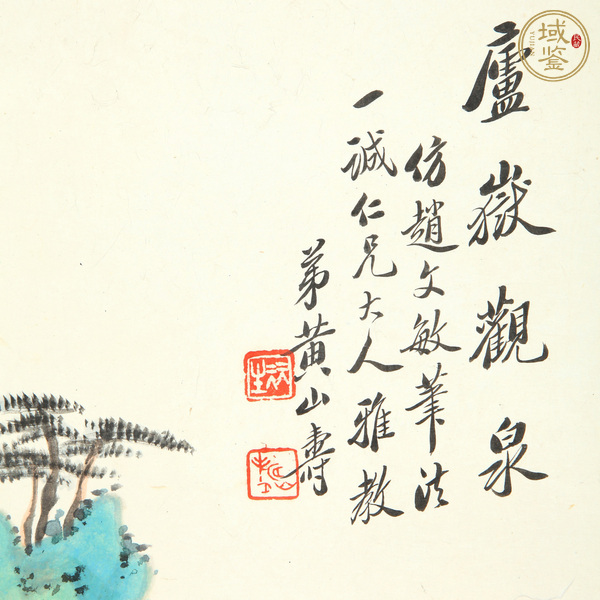 廬嶽觀泉
仿趙文敏筆法
一誠仁兄大人雅教
弟黃山壽
域鑒
YUJIAN